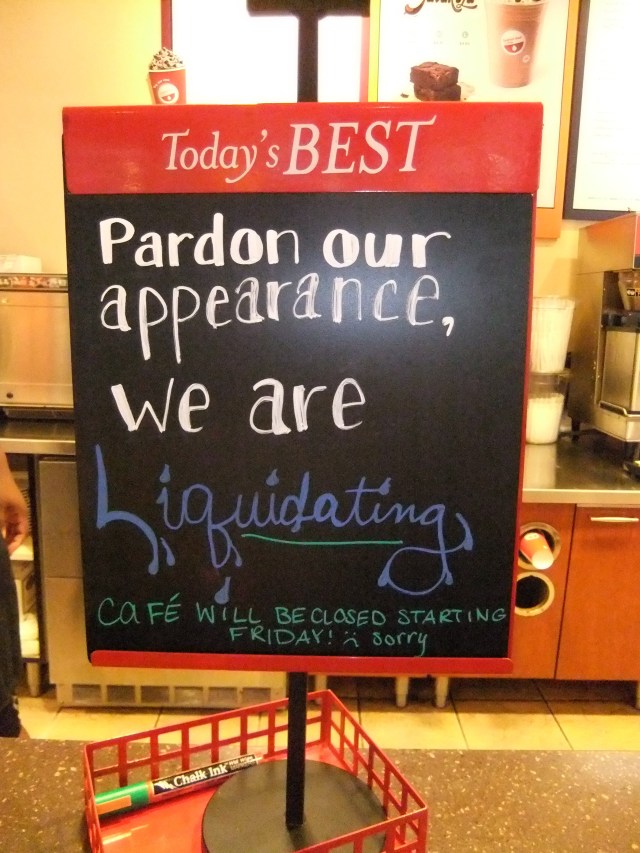 Today's BEST
Pardon our
appearance,
we are
Liquidating
CAFÉ WILL BE CLOSED STARTING
FRIDAY! :( sorry
Chalk Ink